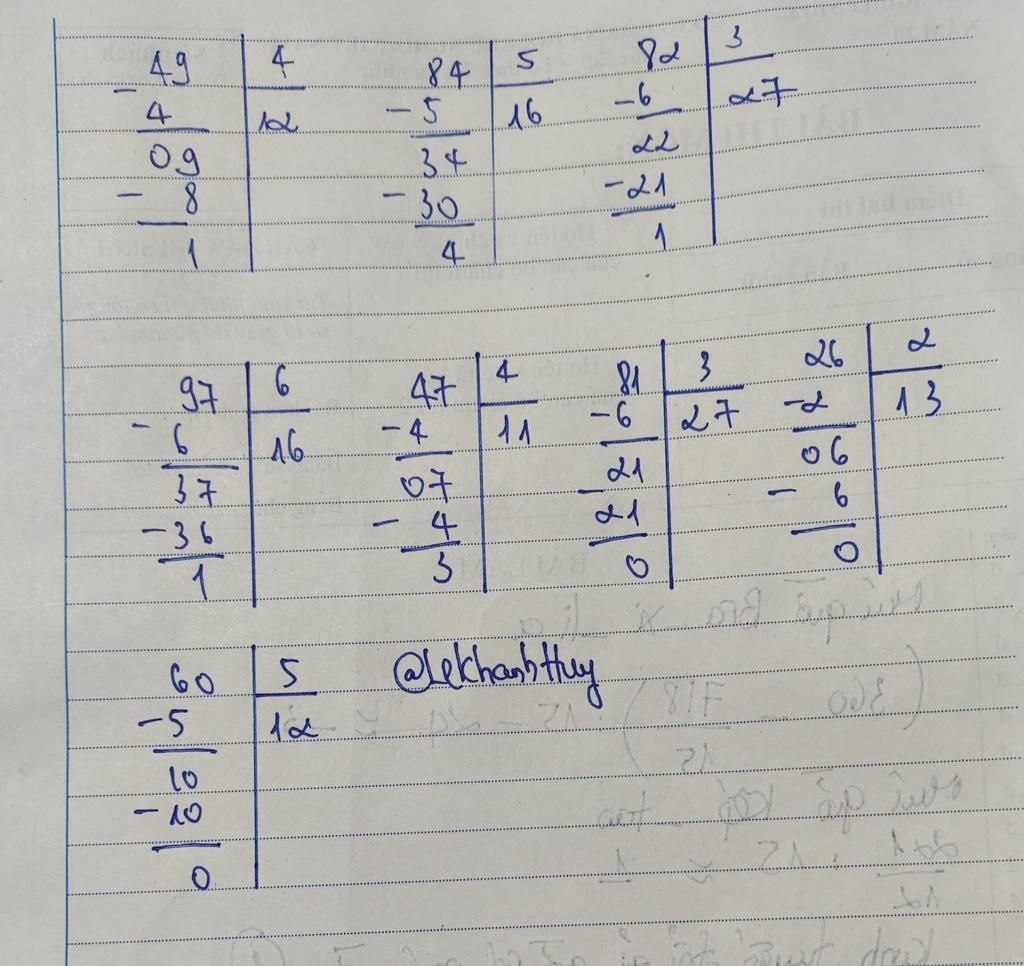 49 4 84 5 82 3
- 4 12 - 5 16 - 6 27
09 34 22
- 8 - 30 - 21
1 4 1
97 6 47 4 81 3 26 2
- 6 16 - 4 11 - 6 27 - 2 13
37 07 21 06
- 36 - 4 - 21 - 6
1 3 0 0
60 5 @LeKhanhHuy
- 5 12
10
- 10
0